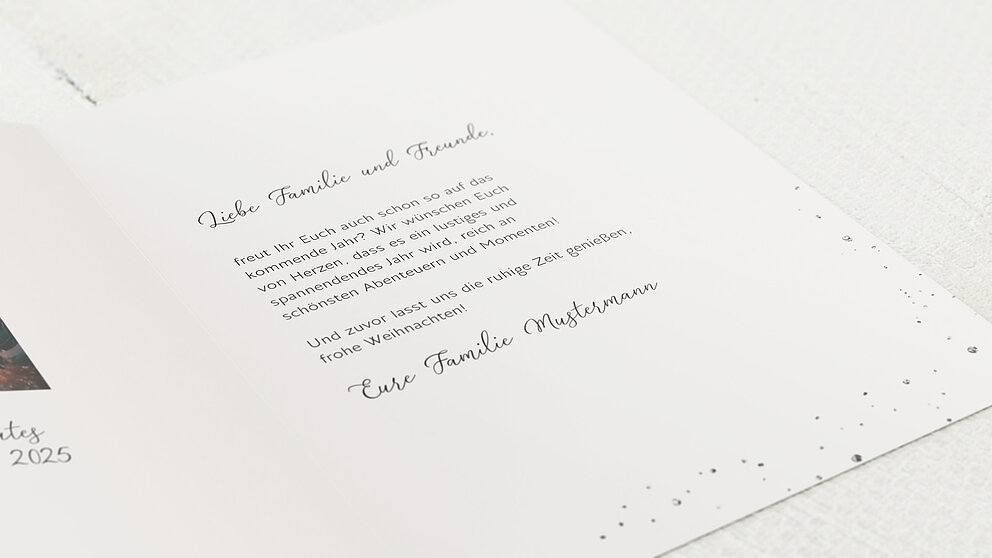 Liebe Familie und Freunde,
freut Ihr Euch auch schon so auf das
kommende Jahr? Wir wünschen Euch
von Herzen, dass es ein lustiges und
spannendendes Jahr wird, reich an
schönsten Abenteuern und Momenten!
Und zuvor lasst uns die ruhige Zeit genießen,
frohe Weihnachten!
Eure Familie Mustermann
2025